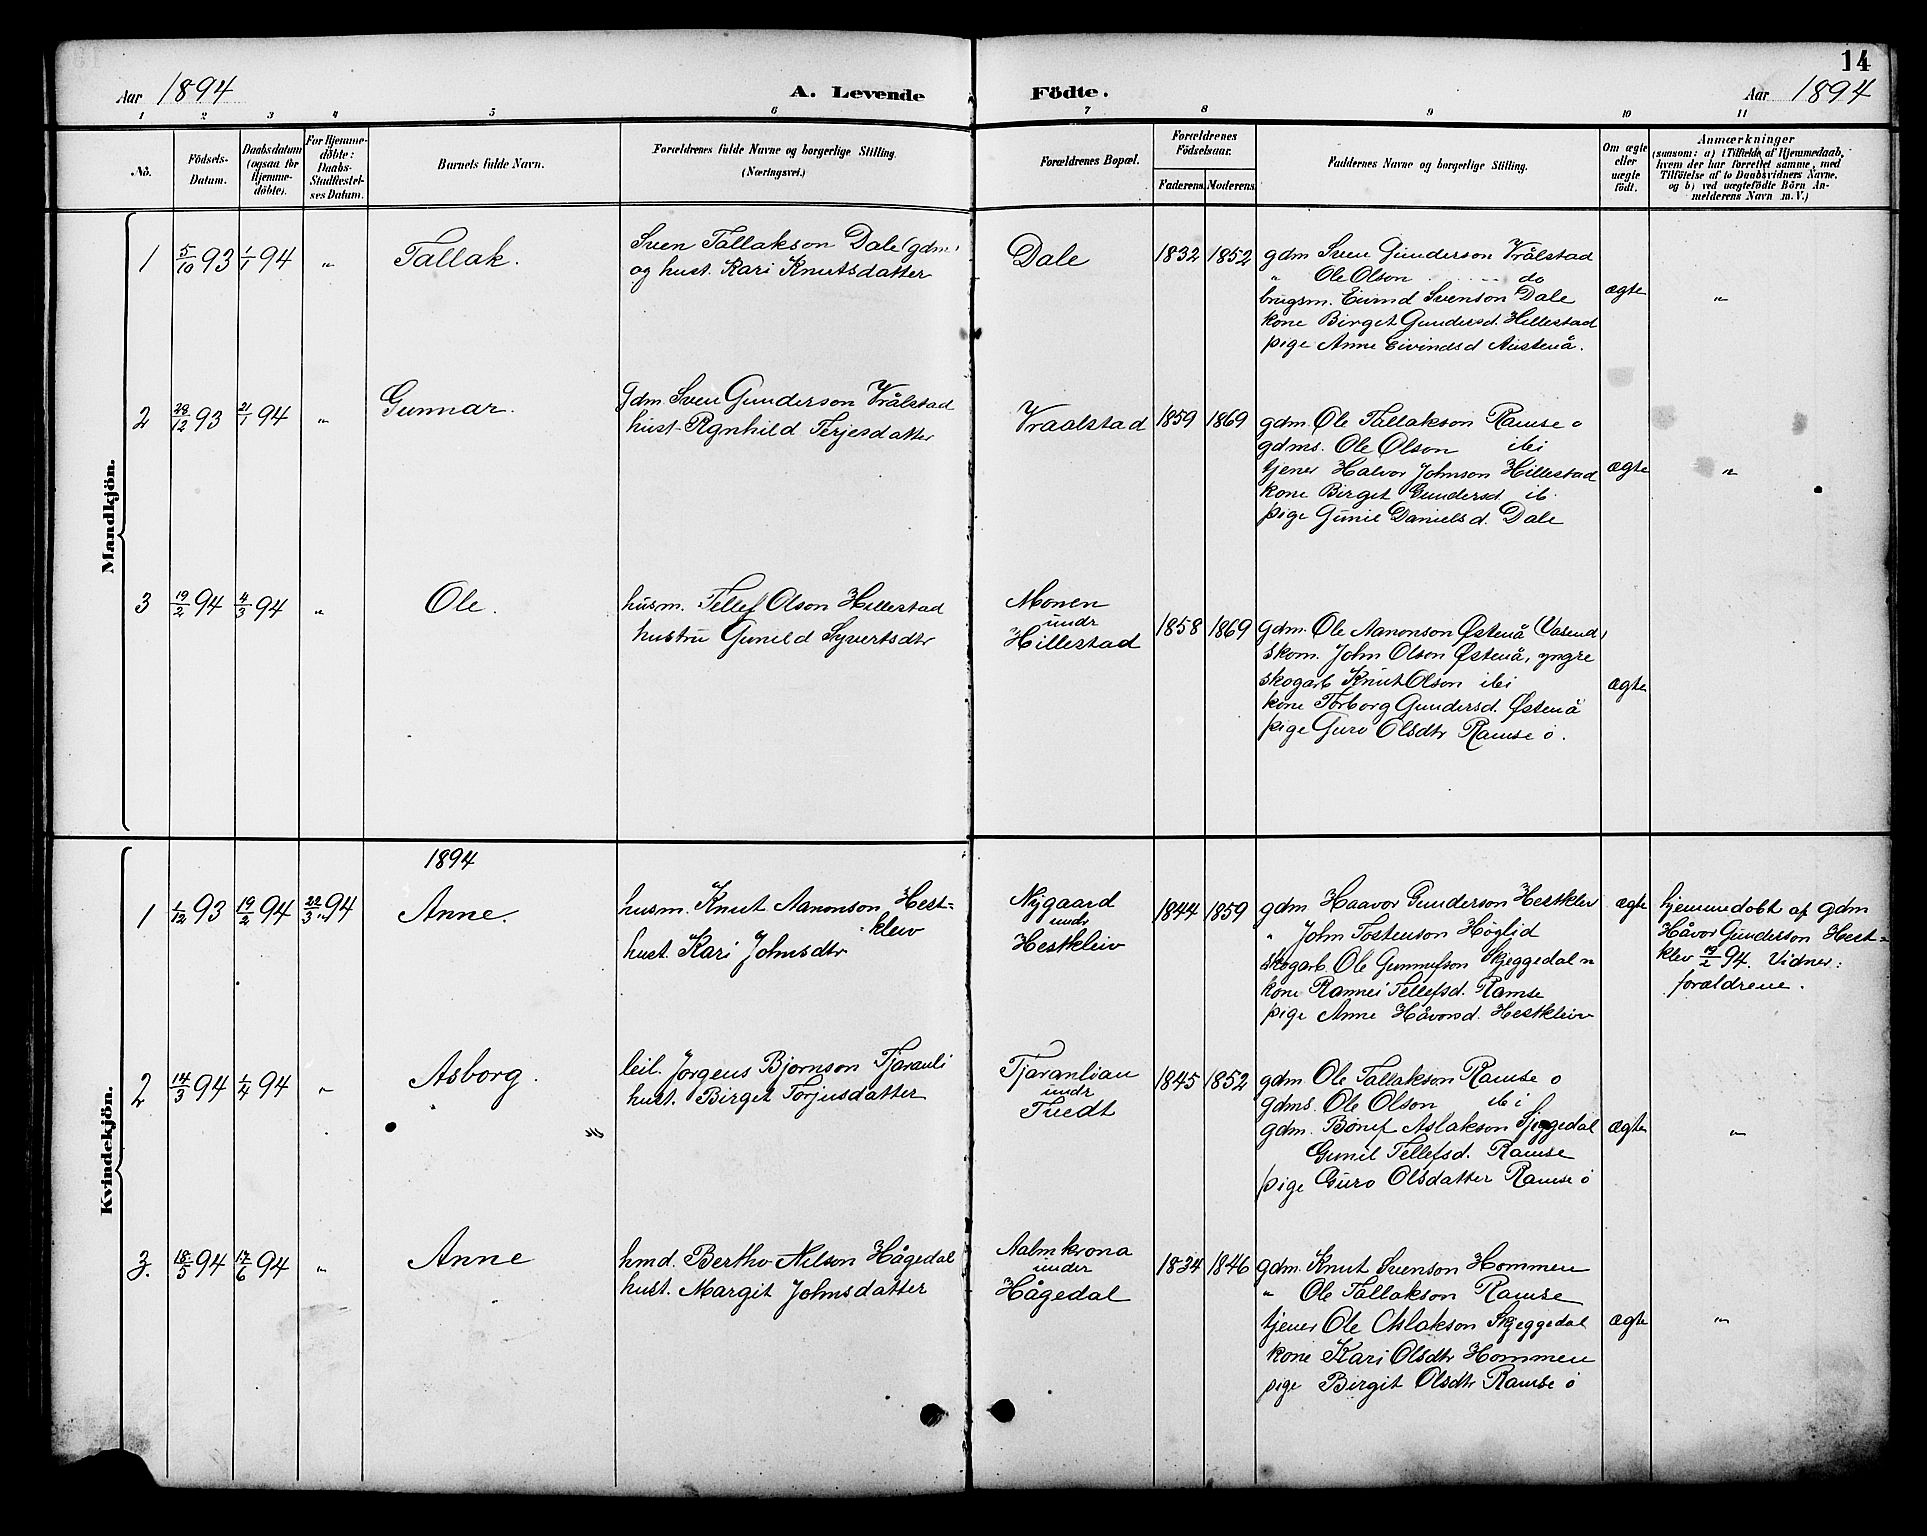 14
Aar 1894
A. Levende Födte.
Aar 1894
1 2 3 4 5 6 7 8 9 10 11
No.
Födsels-
Datum.
Daabsdatum
(ogsaa for
Hjemme-
döbte).
For Hjemme-
döbte:
Daabs-
Stadfæstel-
ses Datum.
Barnets fulde Navn.
Forældrenes fulde Navne og borgerlige Stilling.
(Næringsvei.)
Forældrenes Bopæl.
Forældrenes
Födselsaar.
Faderens. Moderens.
Faddernes Navne og borgerlige Stilling.
Om ægte
eller
uægte
födt.
Anmærkninger
(saasom: a) i Tilfælde af Hjemmedaab,
hvem der har forrettet samme, med
Tilföielse af to Daabsvidners Navne,
og b) ved uægtefödte Börn An-
melderens Navn m. V.)
Mandkjön.
1 5/10 93 1/1 94 „ Tallak.
Sven Tallakson Dale (gdm.
og hust. Kari Knutsdatter
Dale
1832 1852
gdm Sven Gunderson Vrålstad
„ Ole Olson do
brugsm. Eivind Svenson Dale
kone Birget Gundersd. Hillestad
pige Anne Eivindsd Austenå.
ægte „
2 29/12 93 21/1 94 „ Gunnar.
Gdm Sven Gunderson Vrålstad
hust. Rgnhild Terjesdatter
Vraalstad
1859 1869
gdm. Ole Tallakson Ramse o
gdms. Ole Olson ibi
tjener Halvor Johnson Hillestad
kone Birget Gundersd. ib.
pige Gunil Danielsd. Dale
ægte „
3 19/2 94 4/3 94 „ Ole.
husm. Tellef Olson Hillestad
hustru Gunild Syvertsdtr
Monen
undr
Hillestad
1858 1869
gdm. Ole Aanonson Østenå (Vasend)
skom. John Olson Østenå, yngre
skogarb Knut Olson ibi
kone Torborg Gundersd. Østenå
pige Guro Olsdtr Ramse o.
ægte
Kvindekjön.
1894
1 1/12 93 19/2 94 22/3 94 Anne.
husm. Knut Aanonson Hest-
kleiv
hust. Kari Johnsdtr
Nygaard
undr
Hestkleiv
1844 1859
gdm Haavor Gunderson Hestkleiv
„ John Tostenson Höglid
skogarb. Ole Gunnufson Skjeggedal n
kone Rannei Tellefsd. Ramse
pige Anne Håvorsd. Hestkleiv
ægte
hjemmedøbt af gdm
Håvor Gunderson Hest-
klev 19/2 94. Vidner:
forældrene.
2 14/3 94 1/4 94 „ Asborg.
leil. Jørgens Bjornson Tjaranli
hust. Birget Torjusdatter
Tjaranlian
undr
Tvedt
1845 1852
gdm. Ole Tallakson Ramse o
gdms. Ole Olson ibi
gdm. Bonef Aslakson Sjeggedal
Gunil Tellefsd. Ramse
pige Guro Olsdatter Ramse o
ægte „
3. 18/5 94 17/6 94 „ Anne
hmd. Bertho Nilson Hågedal
hust. Margit Johnsdatter
Aalmkrona
under
Hågedal
1834 1846
gdm. Knut Svenson Hommen
„ Ole Tallakson Ramse
tjener Ole Aslakson Skjeggedal
kone Kari Olsdtr Hommen
pige Birgit Olsdtr Ramse o
ægte „